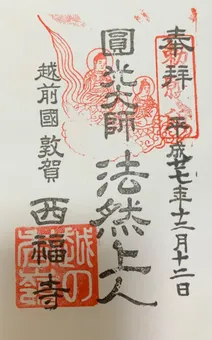 奉拝
平成廿七年十二月十二日
圓光大師 法然上人
越前國敦賀
西福寺